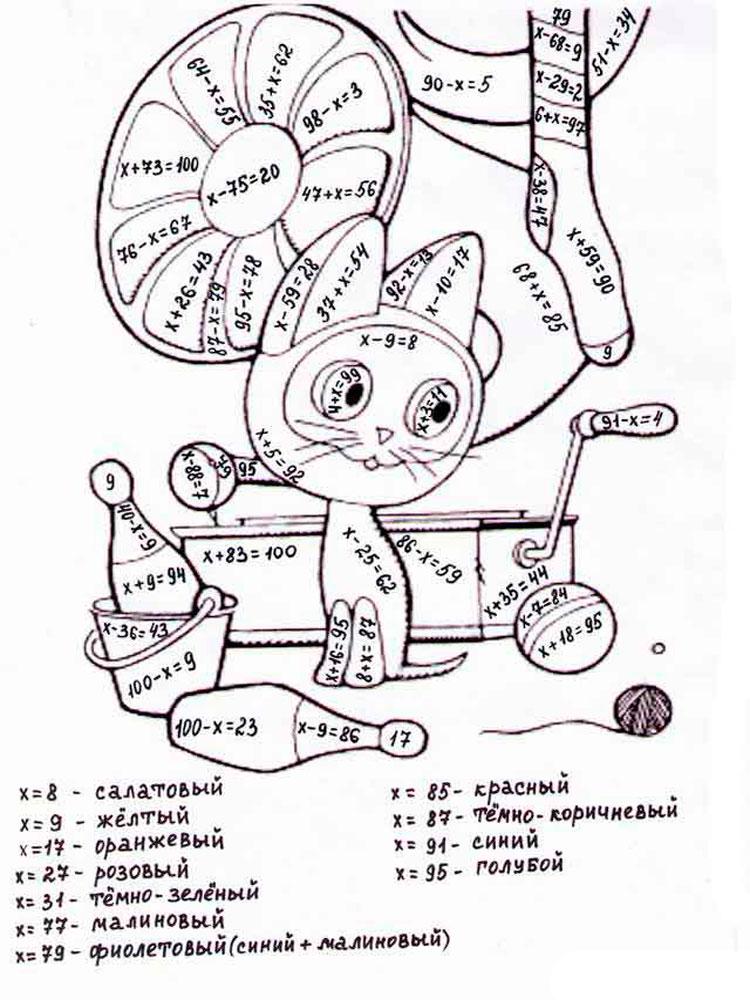 79
x-68=9
51-x=34
64-x=55
35+x=62
90-x=5
x-29=2
98-x=3
6+x=97
x+73=100
x-75=20
47+x=56
x-38=47
76-x=67
x+59=90
x+26=43
87-x=79
95-x=78
x-59=28
37+x=54
92-x=13
x-10=17
68+x=85
x-9=8
9
4+x=99
x+3=11
91-x=4
x+5=92
x-88=7
79
95
9
40-x=9
x+83=100
x-25=62
86-x=59
x+9=94
x+35=44
x-7=84
x-36=43
x+18=95
x+16=95
8+x=87
100-x=9
100-x=23
x-9=86
17
x=8 - салатовый
x=9 - жёлтый
x=17 - оранжевый
x=27 - розовый
x=31 - тёмно-зелёный
x=77 - малиновый
x=79 - фиолетовый(синий + малиновый)
x= 85 - красный
x= 87 - тёмно-коричневый
x= 91 - синий
x= 95 - голубой